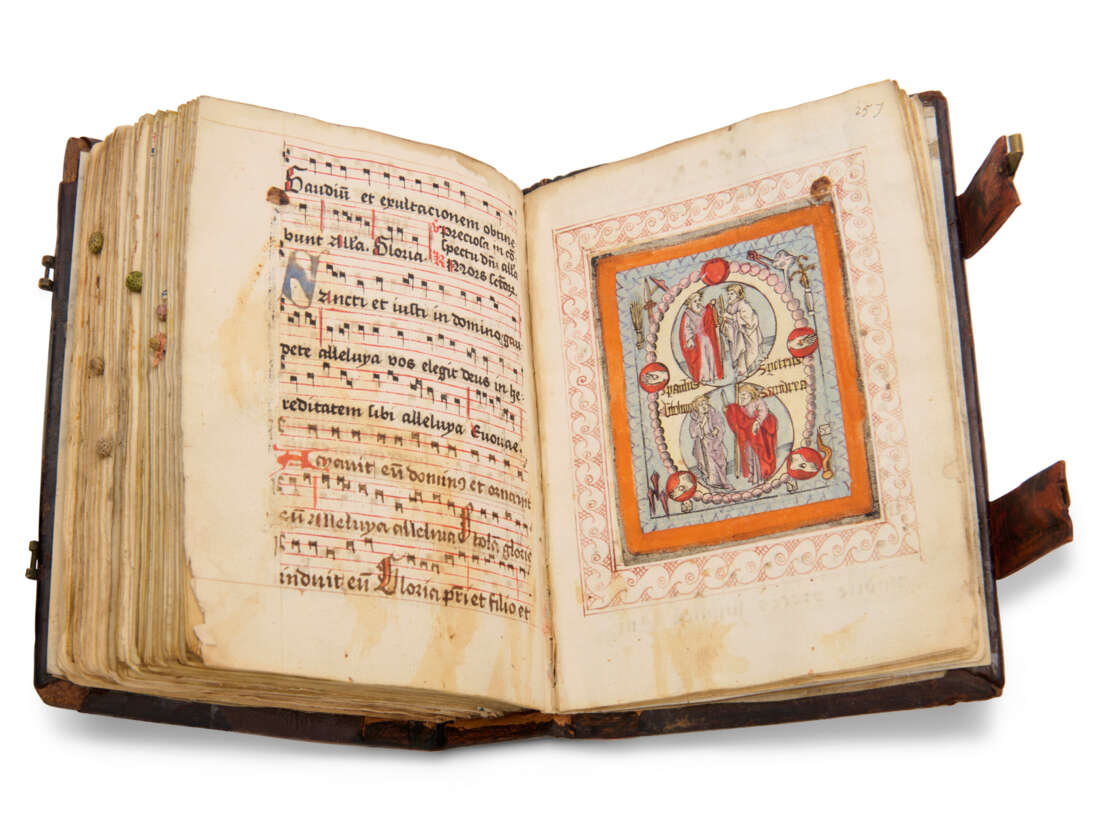 Gaudiū et exultacionem obtine
bunt Alľa. Gloria. ℣ Preciosa in cō
spectu dn̄i alľa
℟ Mors
Sancti et iusti in domino gau
dete alleluya vos elegit deus in he
reditatem sibi alleluya Euouae.
Amauit eū dominꝰ et ornauit
eū Alleluya alleluia Stolā glorie
induit eū Gloria pr̄i et filio et
257
S petrus
S paulus
S andrea